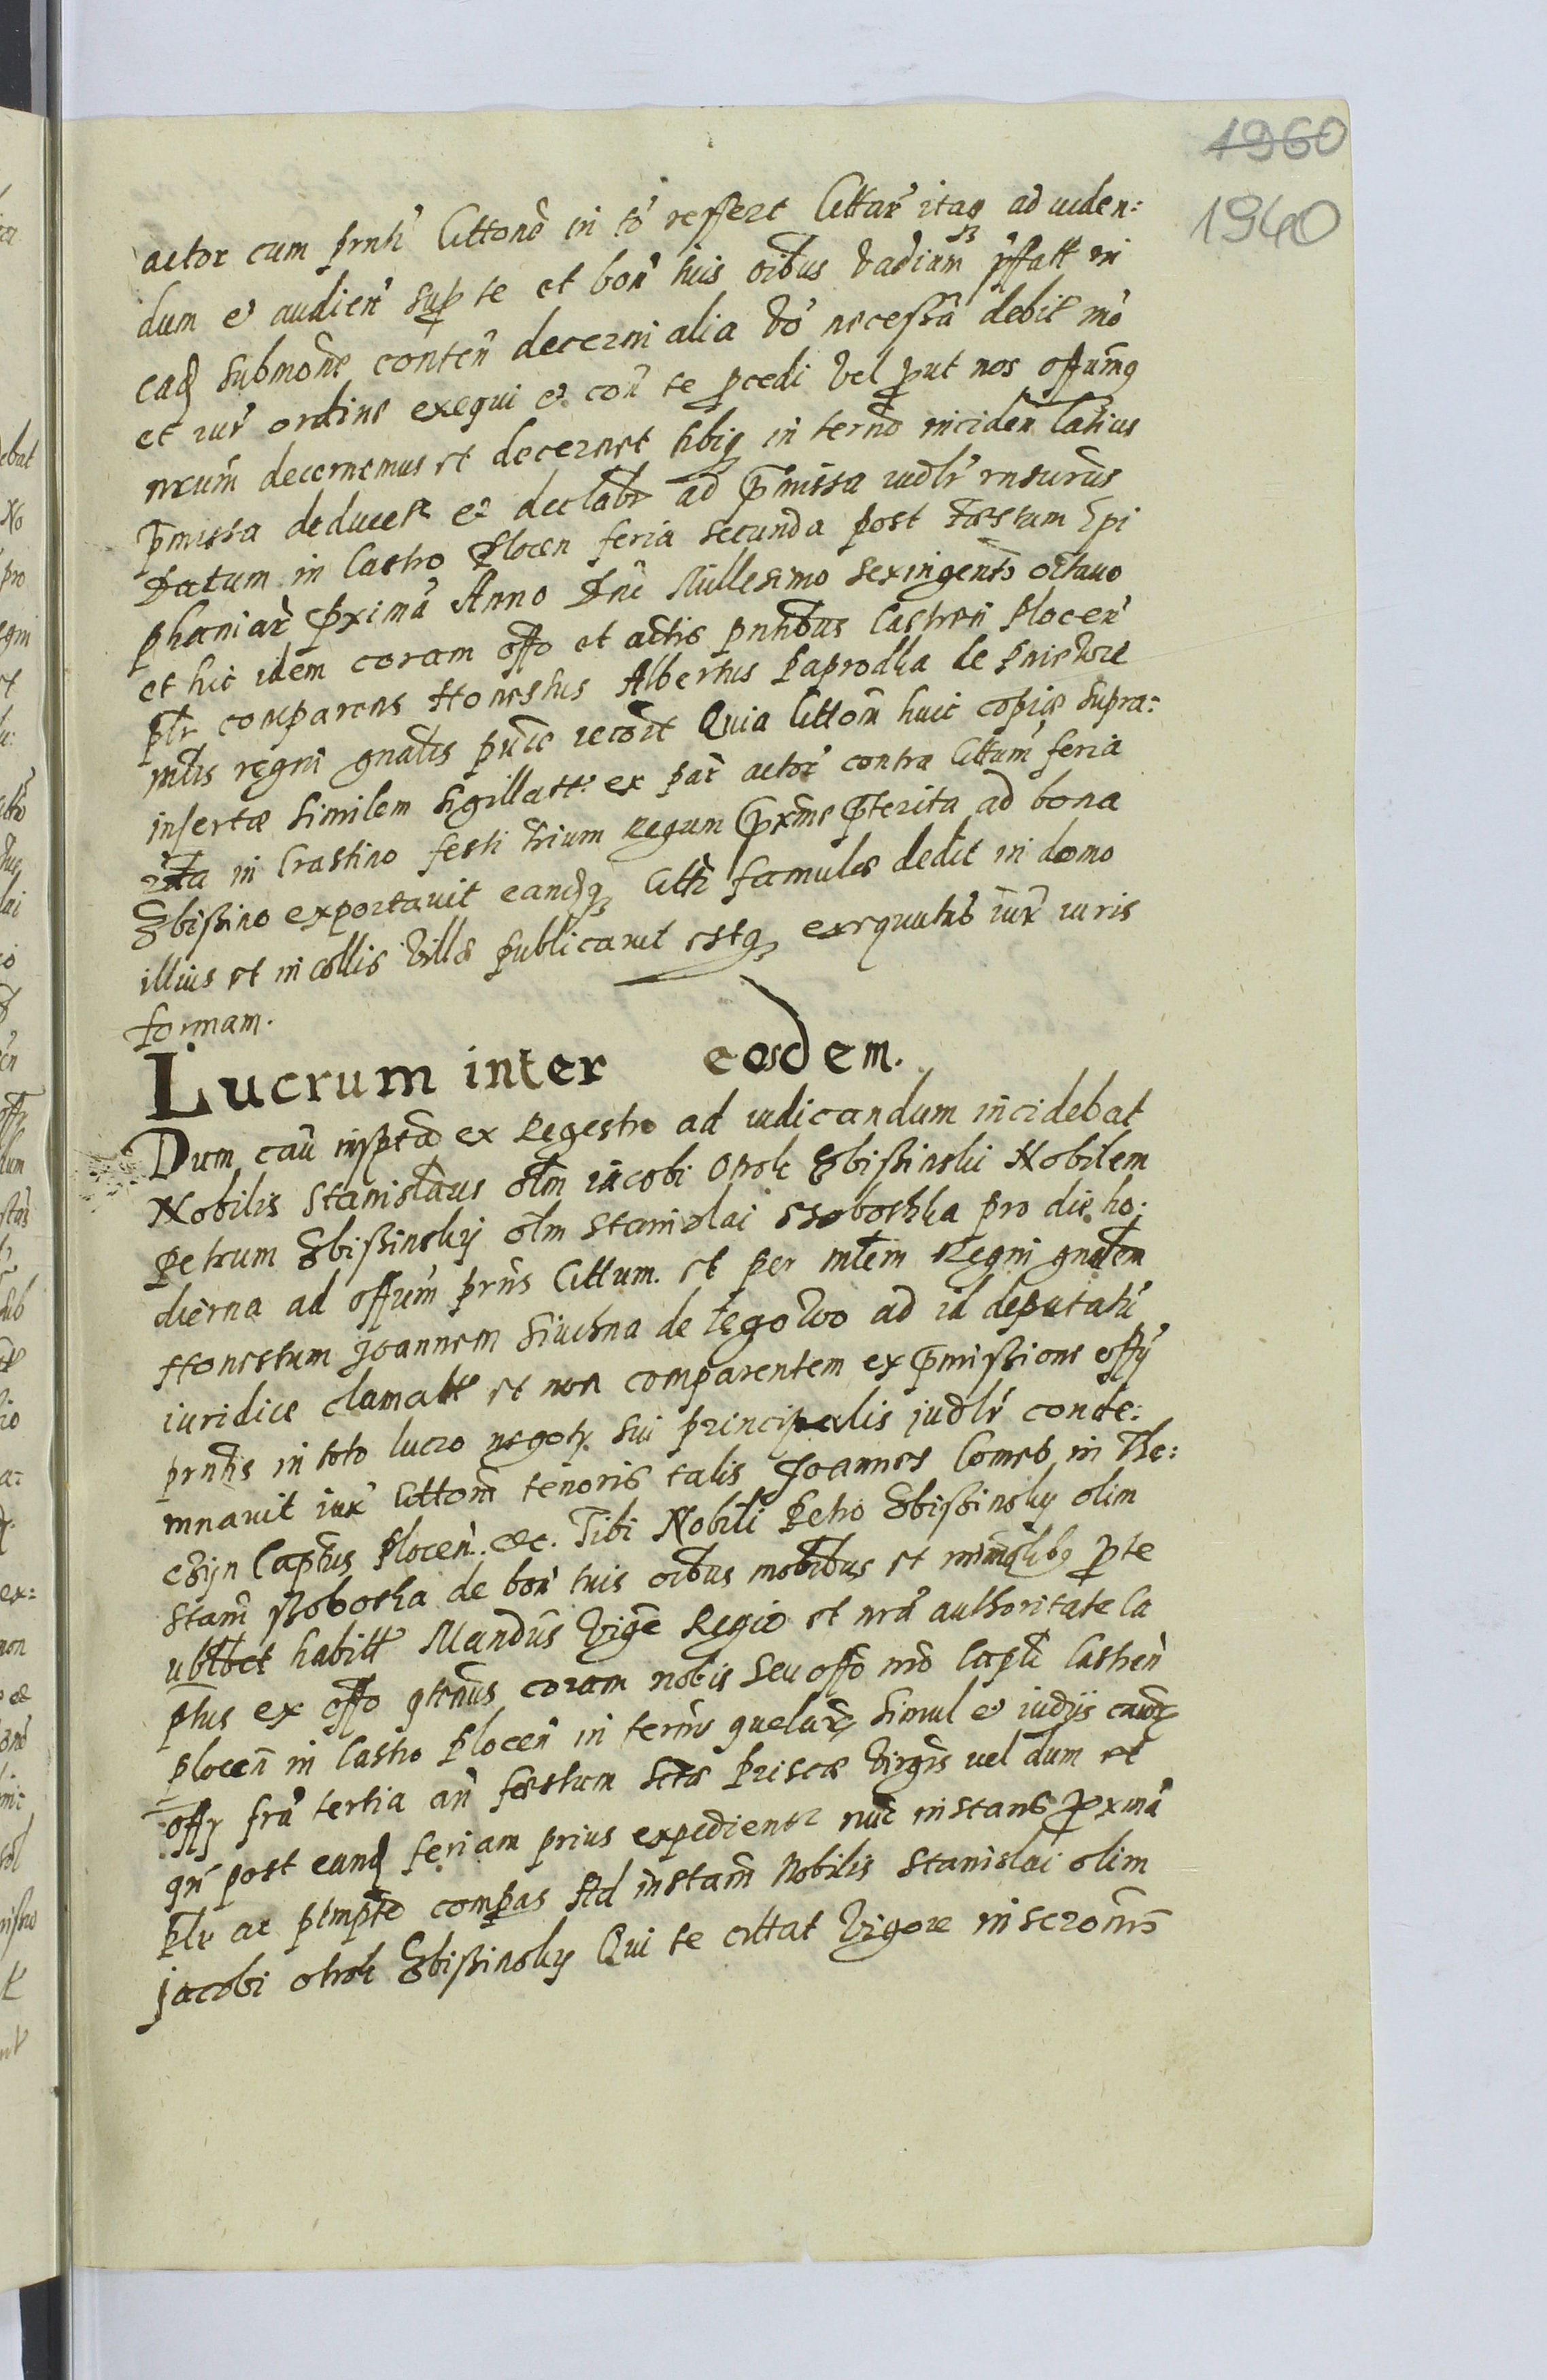 1960
1940
actor cum prnti Cittone in to reffert Cittar itaq ad viden:
dum et audien sup te et bon tuis oibus vadium pffatt in
eaq submone conten decerni alia vo necessa debit mo
et iur ordine exequi et con te pcedi vel put nos offumq
nrum decernemus et decernet tibiq in termo inciden latius
pmissa deducet et declabr ad pmissa iudlr rnsurus
Datum in Castro Plocen feria secunda post festum Epi
phaniar pxima Anno Dni Millesimo sexingento octavo
et hic idem coram offo et actis pntibus Castren Plocen
plr comparens Honestus Albertus Paprodka de
mtis regni gnalis puce recovit Quia Cittom huic copiæ supra:
insertæ similem sigillatt ex par actor contra Cittum feria
in Crastino festi trium Regum pxime pterita ad bona
Zbissino exportavit eandq Citti famulæ dedit in domo
illius et in collis villæ publicavit estq exequutus iux iuris
formam.
Lucrum inter eosdem.
Dum cau inspta ex Regestro ad iudicandum incidebat
Nobilis Stanislaus olm iacobi Otrok Zbissinski Nobilem
Petrum Zbissinsky olm Stanislai Ssoboczka pro die ho:
dierna ad offum prns Cittum et per mtem Regni gnalem
Honestum Joannem de Łęgowo ad id deputatu
iuridice clamatt et non comparentem ex pmissione offy
prntis in toto lucro negoty sui principalis judlr conde:
mnavit iux Cittom tenoris talis Joannes Comes in The:
czyn Captus Plocen. &c. Tibi Nobili Petro Zbissinsky olim
Stani Ssobotka de bon tuis oibus mobibus et inmolibq pte
ubilbet habitt Mandus vige Regio et nra authoritate Ca
ptus ex offo qtenus coram nobis seu offo nro Capli Castren
plocen in Castro Plocen in termis quelarq simul et iudijs caurq
offy fra tertia an festum Sctæ Priscæ Virgis vel dum et
qn post eand feriam prius expedientr nuc instans pxima
plr ac pemptre compas Ad instam Nobilis Stanislai olim
Jacobi otrok Zbissinsky Qui te cittat vigore inscronis